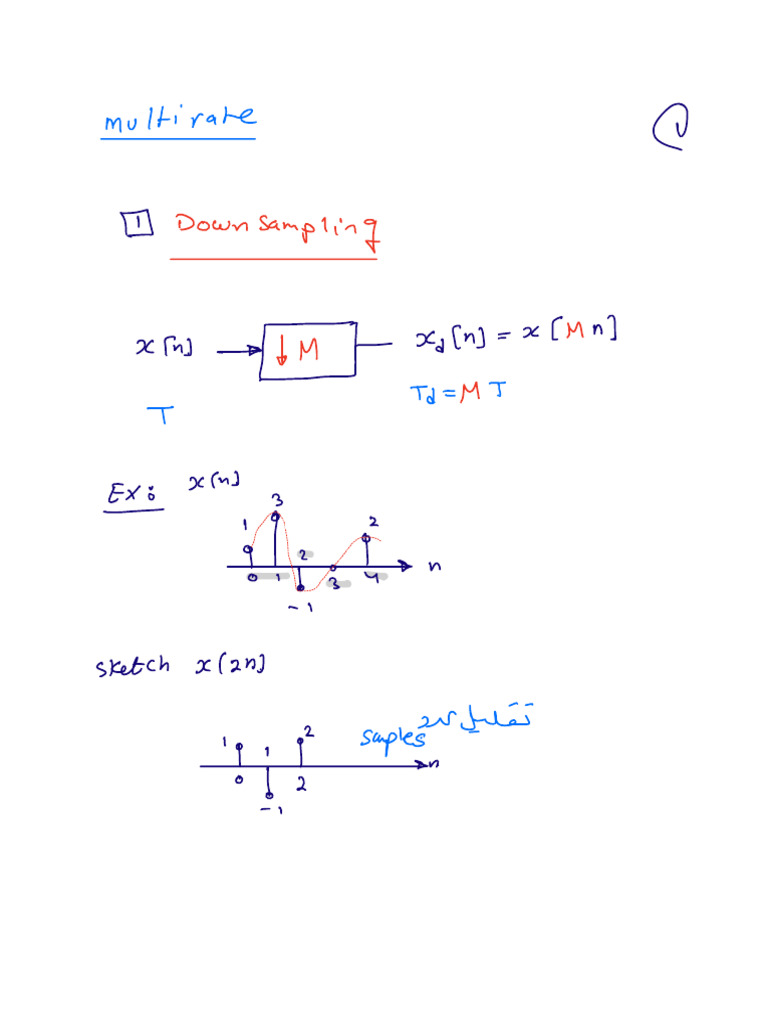 multirate
1 Down sampling
x[n] ↓ M x_d[n] = x[Mn]
T T_d = M T
Ex: x[n]
3
1 2
2
0 1 3 4 n
-1
sketch x[2n]
تقليل عدد
samples
1 1 2
n
0 2
-1